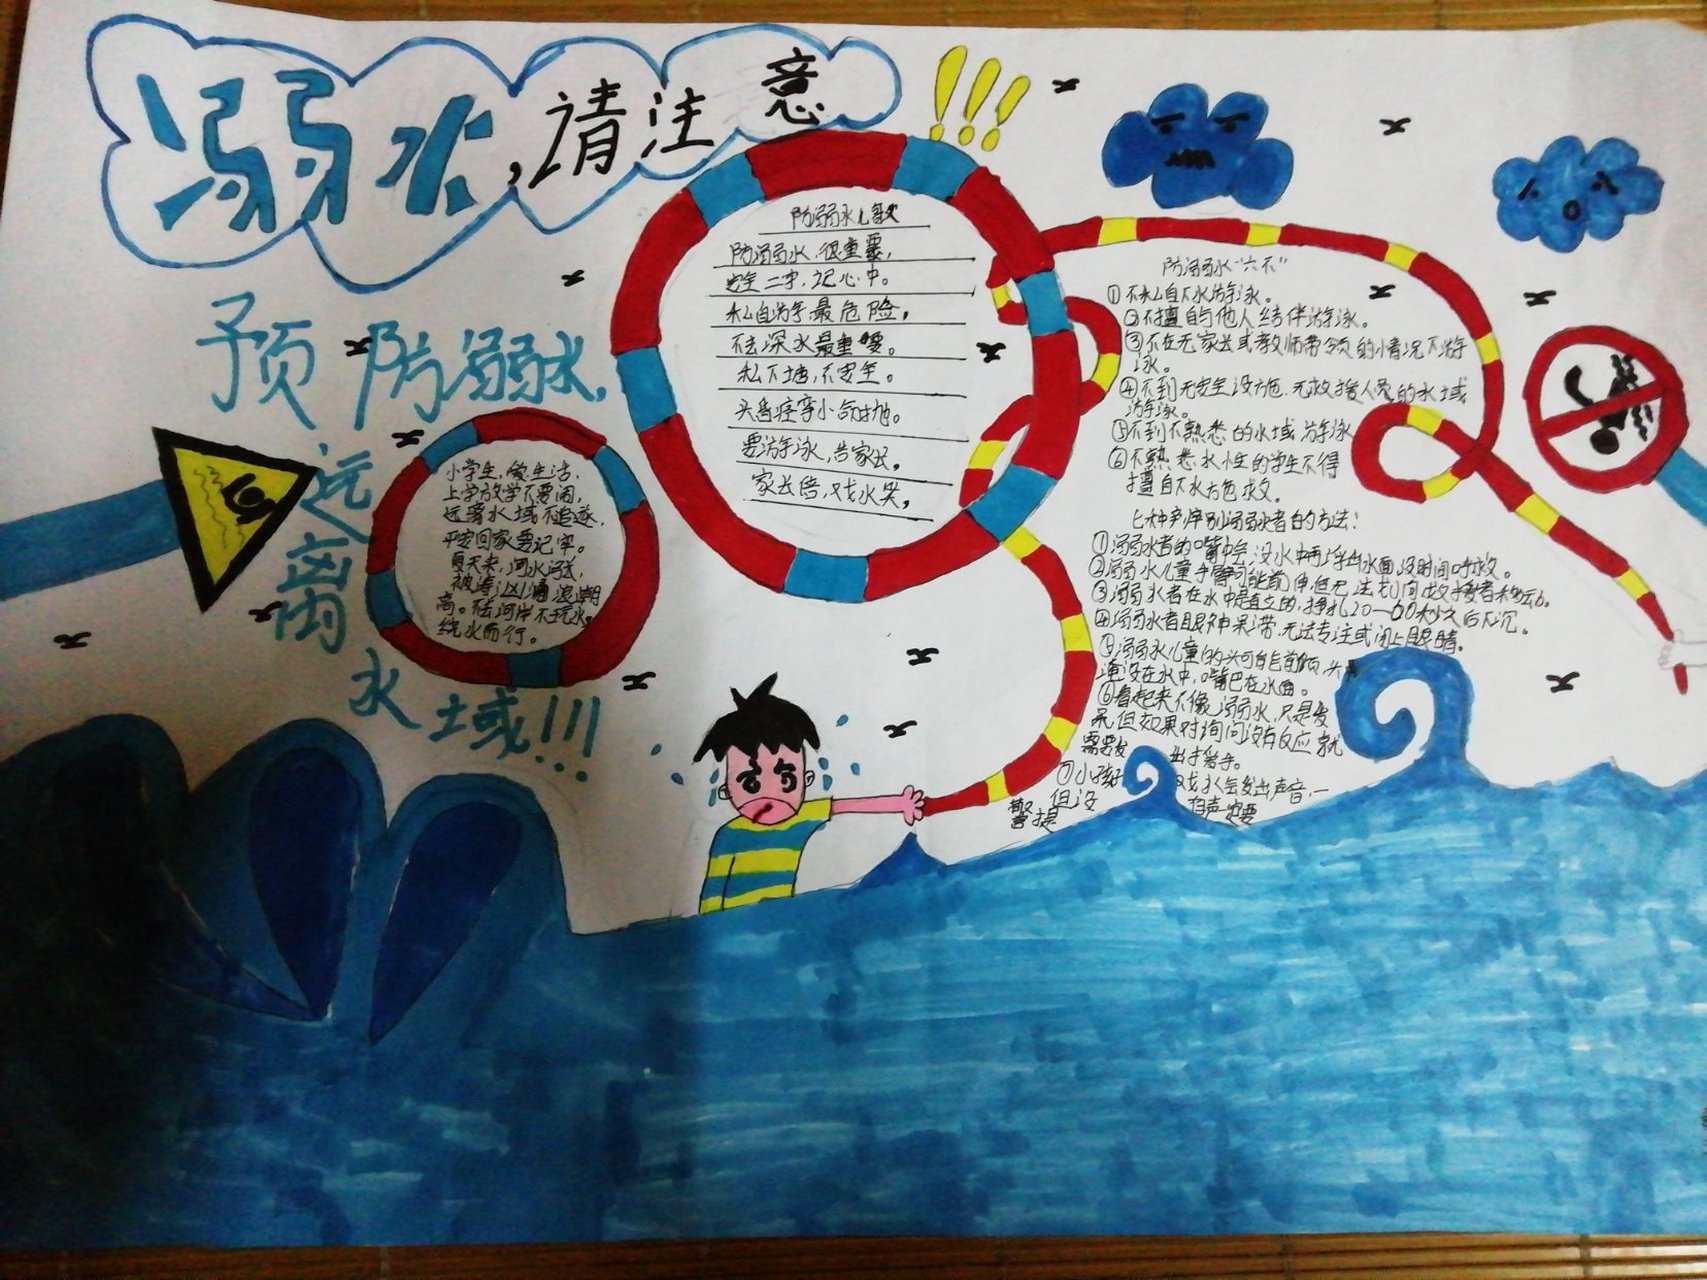 溺水,请注意!!!
预防溺水,
远离
水域!!!
小学生,爱生活,
上学放学不要闹,
远离水域不追逐,
平安回家要记牢。
夏天来,河水涨,
被涛汹涌浪潮
高。不去河岸不玩水,
绕水而行。
防溺水儿歌
防溺水,很重要,
安全二字,记心中。
私自游泳最危险,
不去深水最重要。
私下塘,不安全。
头昏痉挛小命抛。
要游泳,告家长,
家长陪,戏水笑,
防溺水“六不”
①不私自下水游泳。
②不擅自与他人结伴游泳。
③不在无家长或教师带领的情况下游
泳。
④不到无安全设施、无救援人员的水域
游泳。
⑤不到不熟悉的水域游泳
⑥不熟悉水性的学生不得
擅自下水施救。
七种辨别溺水者的方法:
①溺水者的嘴会没水中再浮出水面,没时间呼救。
②溺水儿童手臂可能前伸但无法划向救援者
③溺水者在水中是直立的,挣扎20—60秒之后下沉。
④溺水者眼神呆滞,无法专注或闭上眼睛。
⑤溺水儿童的头可能前倾,头
淹没在水中,嘴巴在水面。
⑥看起来不像溺水,只是发
呆但如果对询问没有反应就
需要 出手
⑦小孩 戏水会发出声音,一
但没 声一定要
警提